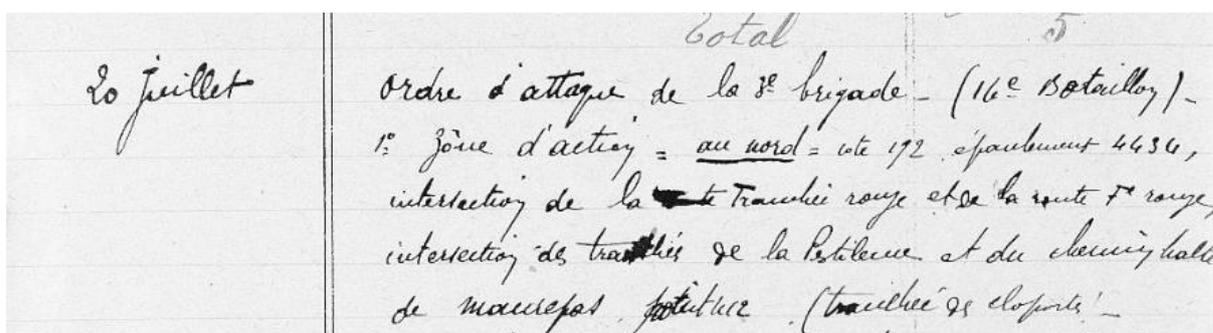 Total 5
20 Juillet
Ordre d'attaque de la 3e brigade - (14e Bataillon) -
1o Zône d'action = au nord = cote 192 épaulement 4434,
intersection de la Tranchée rouge et de la route Fe rouge,
intersection des tranchées de la Pestilence et du chemin halte
de maurepas point 412 (tranchée des cloportes -